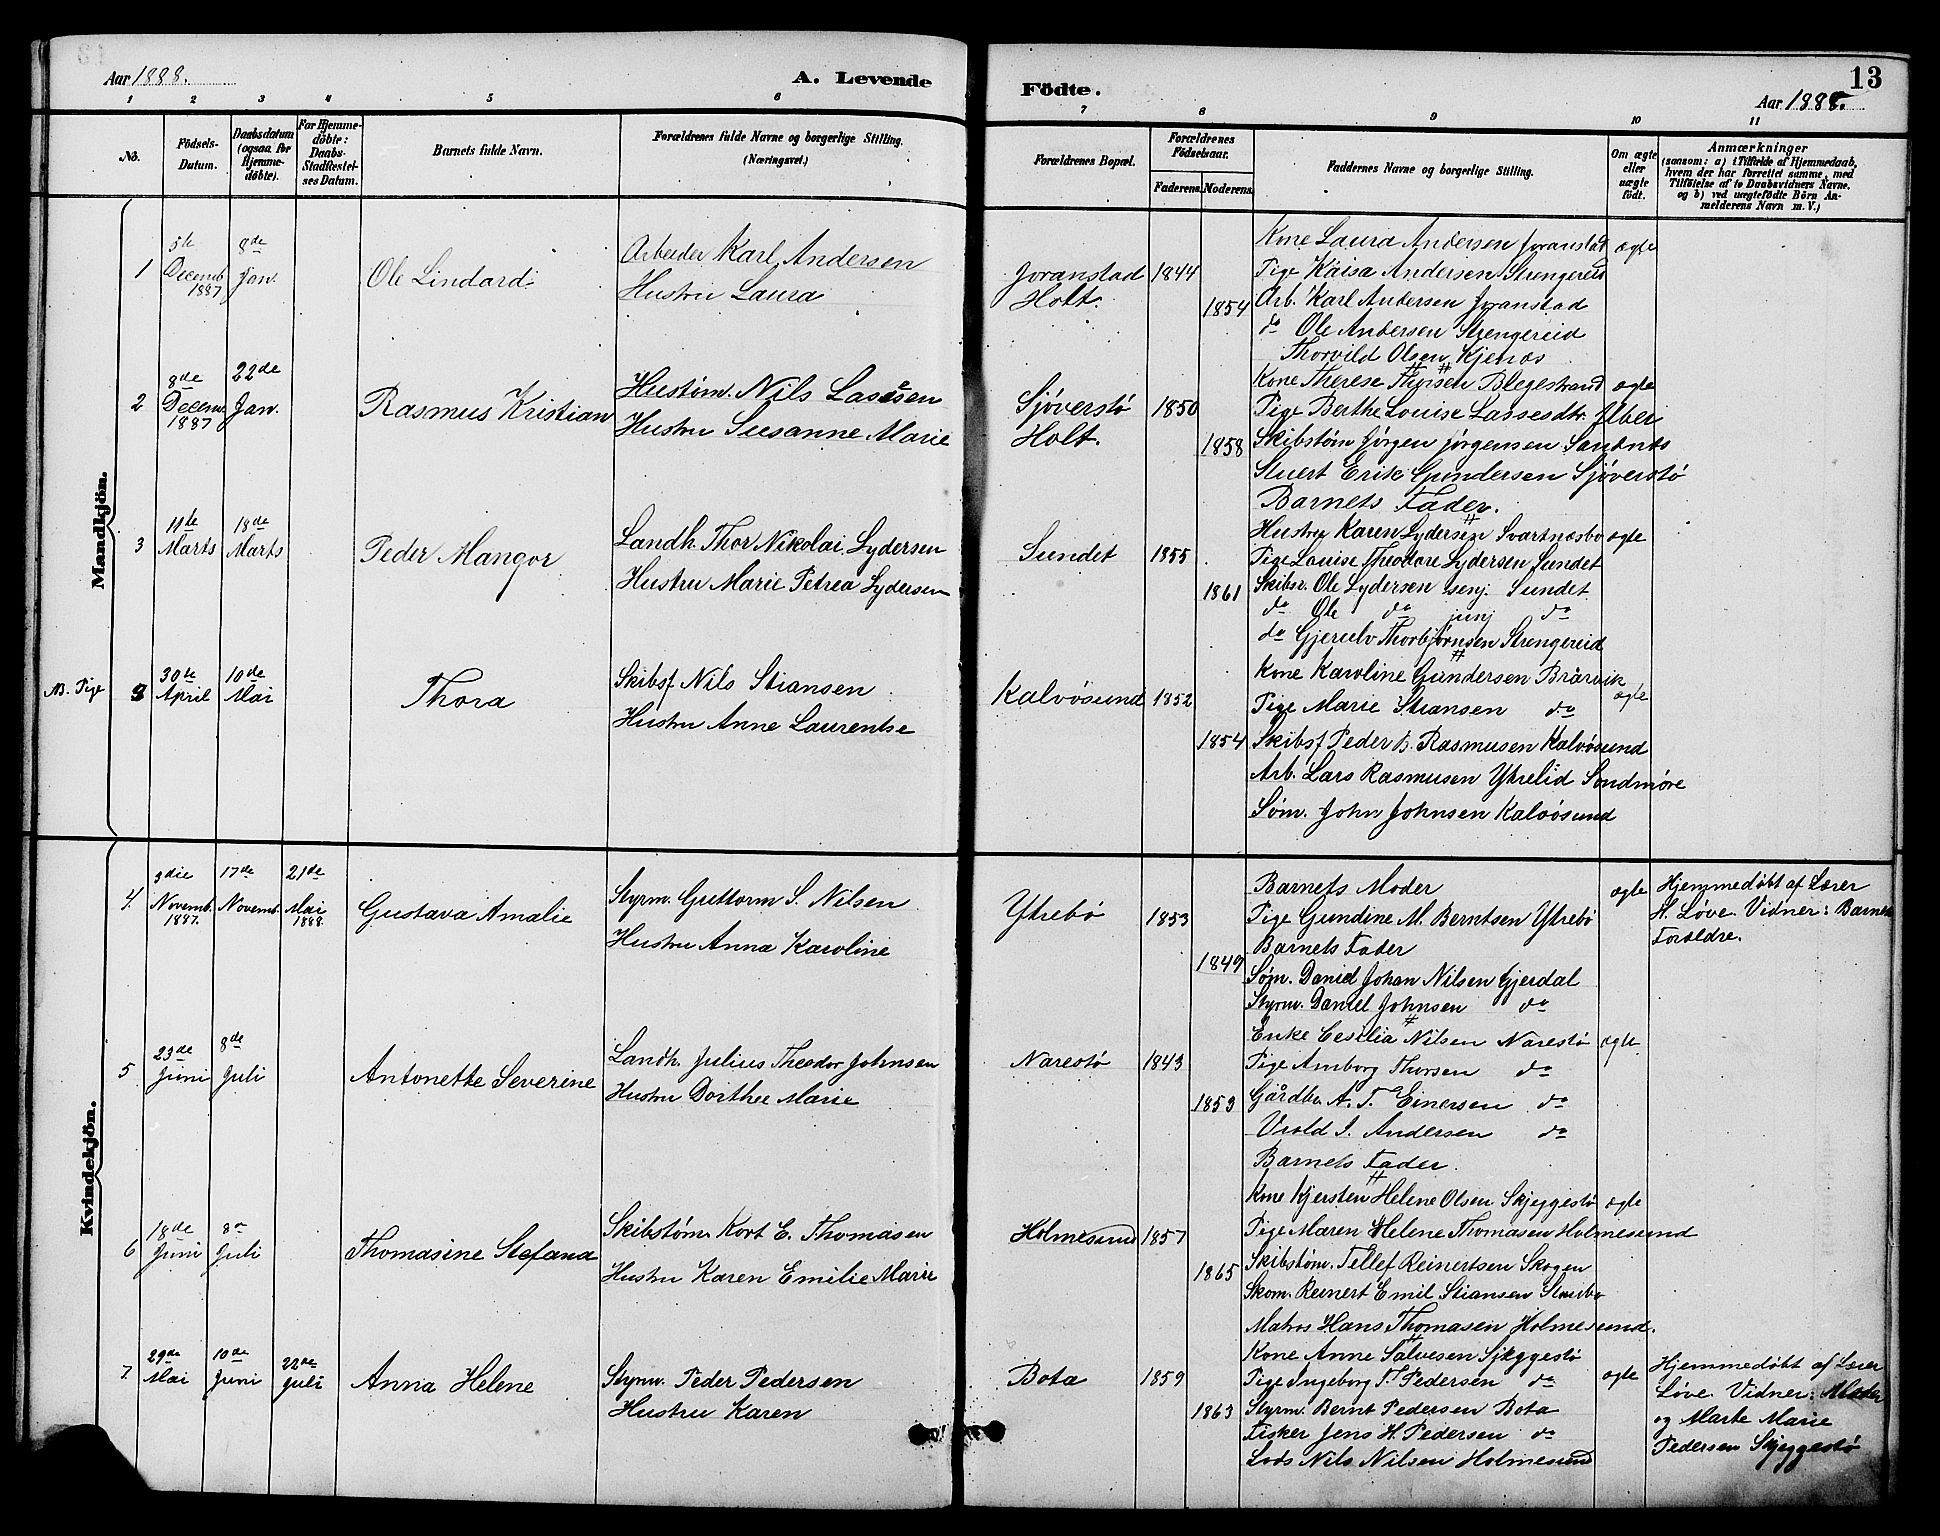 Aar 1888.
A. Levende
Födte.
13
Aar 1888.
1 2 3 4 5 6 7 8 9 10 11
No.
Födsels-
Datum.
Daabsdatum
(ogsaa for
Hjemme-
döbte).
For Hjemme-
döbte:
Daabs-
Stadfæstel-
ses Datum.
Barnets fulde Navn.
Forældrenes fulde Navne og borgerlige Stilling.
(Næringsvei.)
Forældrenes Bopæl.
Forældrenes
Födselsaar.
Faderens.
Moderens.
Faddernes Navne og borgerlige Stilling.
Om ægte
eller
uægte
født.
Anmærkninger
(saasom: a) i Tilfælde af Hjemmedaab,
hvem der har forrettet samme, med
Tilføielse af to Daabsvidners Navne.
og b) ved uægtefödte Börn An-
melderens Navn m. V.)
Mandkjön.
1
5te
Decemb.
1887
8de
Jan.
Ole Lindard
Arbeider Karl Andersen
Hustru Laura
Joranstad
Holt.
1844
1854
Kone Laura Andersen Joranstad
Pige Kaisa Andersen Strengereid
Arb. Karl Andersen Joranstad
do Ole Andersen Strengereid
Thorvild Olsen Kjenæs
ægte
2
8de
Decem.
1887
22de
Jan.
Rasmus Kristian
Hustøm. Nils Lassen
Hustru Susanne Marie
Sjøverstø
Holt.
1850
1858
Kone Therese Thorsen Blegestrand
Pige Berthe Louise Lassesdtr. Alber
Skibstøm Jørgen Jørgensen Sandnæs
Stuert Erik Gundersen Sjøverstø
Barnets Fader.
ægte
3
11te
Marts
18de
Marts
Peder Mangor
Landh. Thor Nikolai Lydersen
Hustru Marie Petrea Lydersen
Sundet
1855
1861
Hustru Karen Lydersen Svartnæsbo
Pige Louise Theodore Lydersen Sundet
Skibsr. Ole Lydersen senj. Sundet
do Ole do junj do
do Gjerulv Thorbjørnsen Strengereid
ægte
NB. Pige
3
30te
April
10de
Mai
Thora
Skibsf Nils Stiansen
Hustru Anne Laurentse
Kalvøsund
1852
1854
Kone Karoline Gundersen Brårvik
Pige Marie Stiansen do
Skibsf Peder B. Rasmusen Kalvøsund
Arb. Lars Rasmusen Ytrelid Søndmøre
Søm. John Johnsen Kalvøsund
ægte
Kvindekjön.
4.
3die
Novemb.
1887.
17de
Novemb.
21de
Mai
1888.
Gustava Amalie
Styrm. Guttorm S. Nilsen
Hustru Anna Karoline
Ytrebø
1853
1849
Barnets Moder
Pige Gundine M. Berntsen Ytrebø
Barnets Fader
Søm. Daniel Johan Nilsen Gjerdal
Styrm. Daniel Johnsen do
ægte
Hjemmedøbt af Lærer
H. Løve. Vidner: Barnets
Forældre.
5
23de
Juni
8de
Juli
Antonette Severine
Landh. Julius Theodor Johnsen
Hustru Dorthee Marie
Narestø
1843
1853
Enke Cesilia Nilsen Narestø
Pige Amborg Thorsen do
Gårdbr A. T. Einersen do
Vrold I. Andersen do
Barnets Fader.
ægte
6
18de
Juni
8de
Juli
Thomasine Stefana
Skibstøm. Kort E. Thomasen
Hustru Karen Emilie Marie
Holmesund
1857
1865
Kone Kjersten Helene Olsen Skjeggestø
Pige Maren Helene Thomasen Holmesund
Skibstøm. Tellef Reinertsen Skogen
Skom. Reinert Emil Stiansen Staubø
Matros Hans Thomasen Holmesund.
ægte
7.
29de
Mai
10de
Juni
22de
Juli
Anna Helene
Styrm. Peder Pedersen
Hustru Karen
Bota
1859
1863
Kone Anne Salvesen Skjeggestø
Pige Ingeborg T. Pedersen do
Styrm. Bernt Pedersen Bota
Fisker Jens H. Pedersen do
Lods Nils Nilsen Holmesund
ægte
Hjemmedøbt af Lærer
Løve. Vidner: Moder
og Marte Marie
Pedersen Skjeggestø